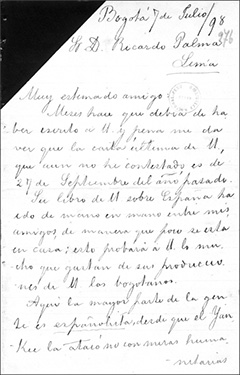 Bogotá 7 de Julio/98
Sr. D. Ricardo Palma
Lima
Muy estimado amigo:
Meses hace que debia de ha
ber escrito a U. y pena me da
ver que la carta ultima de U,
que aun no he contestado es de
27 de Septiembre del año pasado.
Su libro de U sobre España ha
ido de mano en mano entre mis
amigos de manera que poco se está
en casa; esto probará a U. lo mu
cho que gustan de sus produccio
nes de U los bogotanos.
Aqui la mayor parte de la gen
te es españolista, desde que el Yan
kee la atacó no con miras huma
nitarias